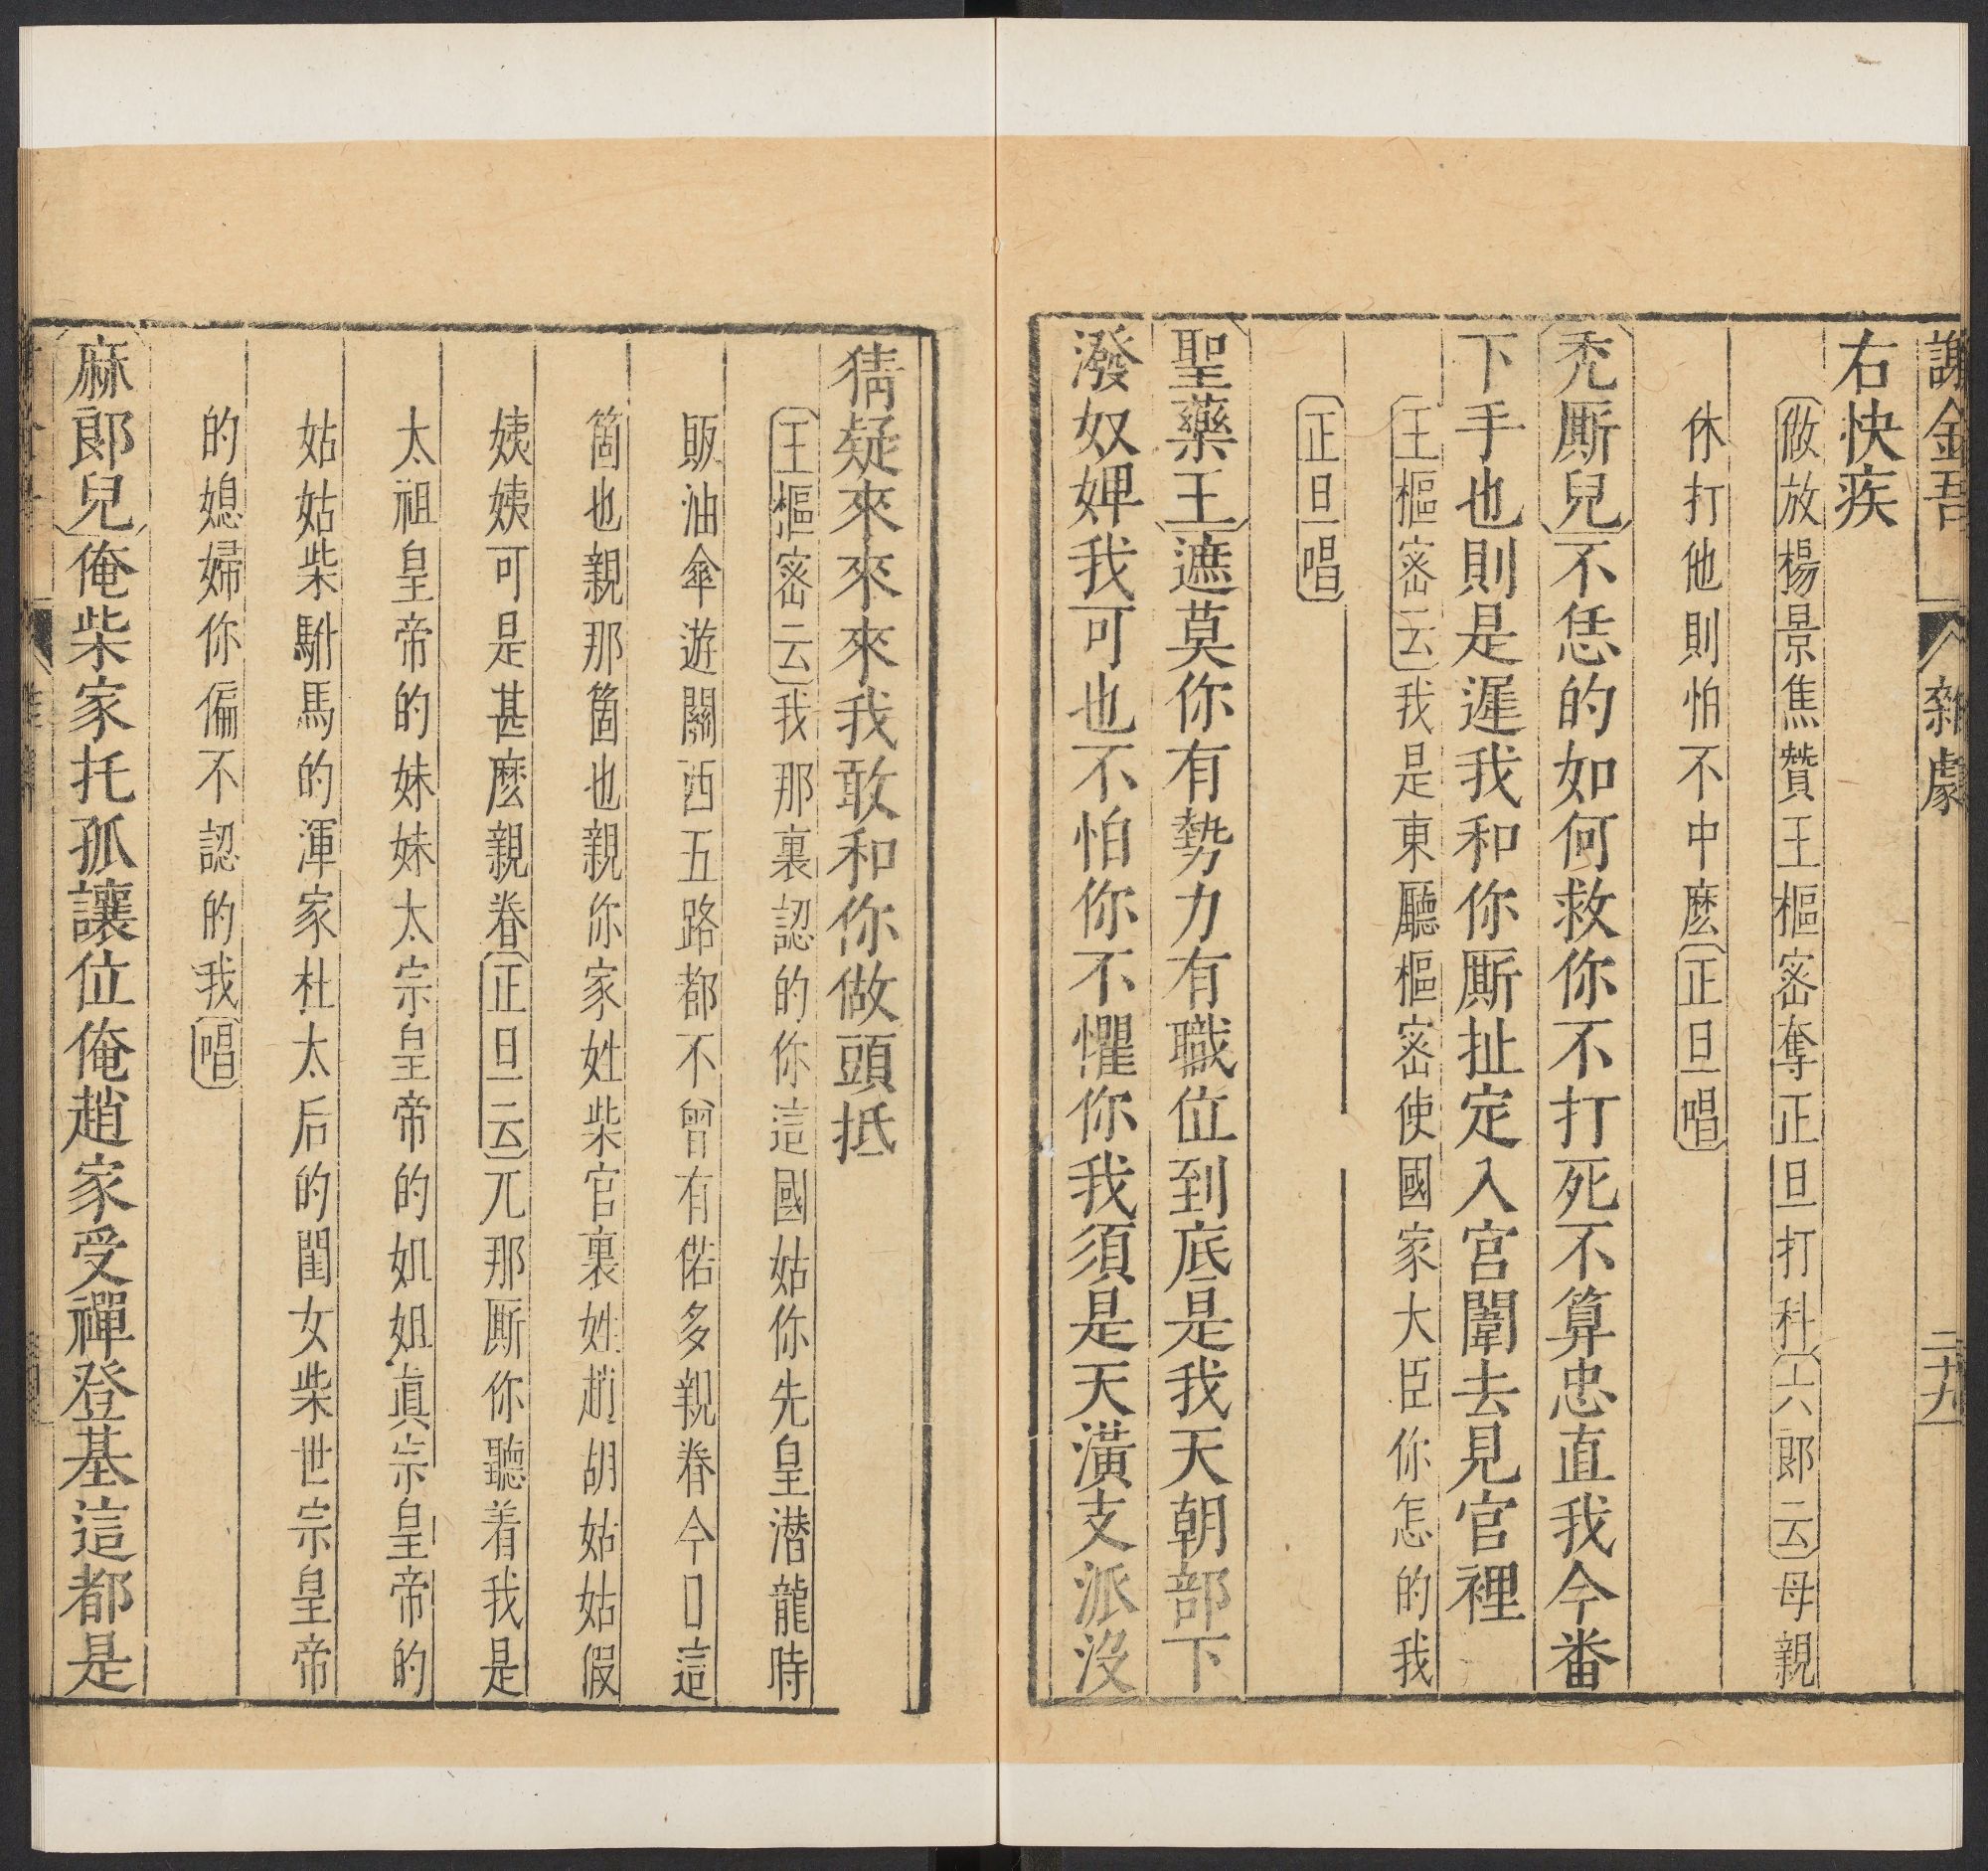 謝金吾 雜劇 二十九
右快疾
做放楊景焦贊王樞密奪正旦打科六郎云母親
休打他則怕不中麽正旦唱
禿廝兒不恁的如何救你不打死不算忠直我今番
下手也則是遲我和你廝扯定入宫闈去見官裡
王樞密云我是東廳樞密使國家大臣你怎的我
正旦唱
聖藥王遮莫你有勢力有職位到底是我天朝部下
潑奴婢我可也不怕你不懼你我須是天潢支派没
猜疑來來來我敢和你做頭抵
王樞密云我那裏認的你這國姑你先皇潛龍時
販油傘遊關西五路都不曾有偌多親眷今日這
箇也親那箇也親你家姓柴官裏姓趙胡姑姑假
姨姨可是甚麽親眷正旦云兀那廝你聽着我是
太祖皇帝的妹妹太宗皇帝的姐姐眞宗皇帝的
姑姑柴駙馬的渾家杜太后的閨女柴世宗皇帝
的媳婦你偏不認的我唱
麻郎兒俺柴家托孤讓位俺趙家受禪登基這都是